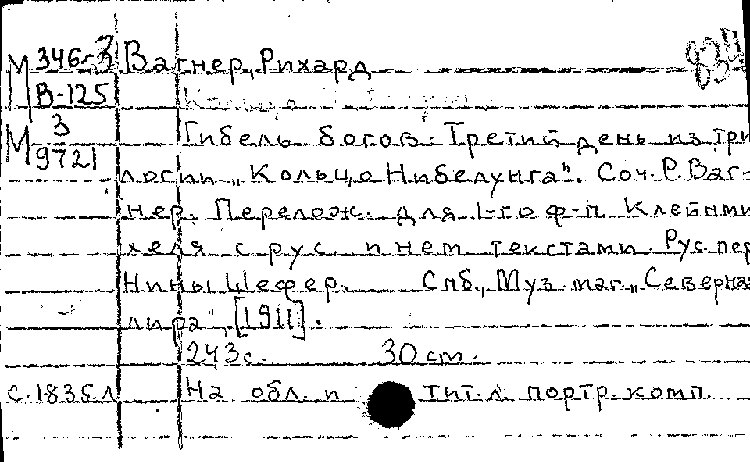 М 346-3 Вагнер, Рихард 834
В-125 Кольцо
М 3/9721 Гибель богов. Третий день из три
логии „Кольцо Нибелунга". Соч. Р. Ваг-
нер. Перелож. для 1-го ф-п. Клейнми
хеля с рус. и нем текстами. Рус. пер
Нины Шефер. Спб., Муз маг „Северна
лира", [1911].
243 с. 30 cm.
с. 1835 л На обл. и тит. л. портр. комп.